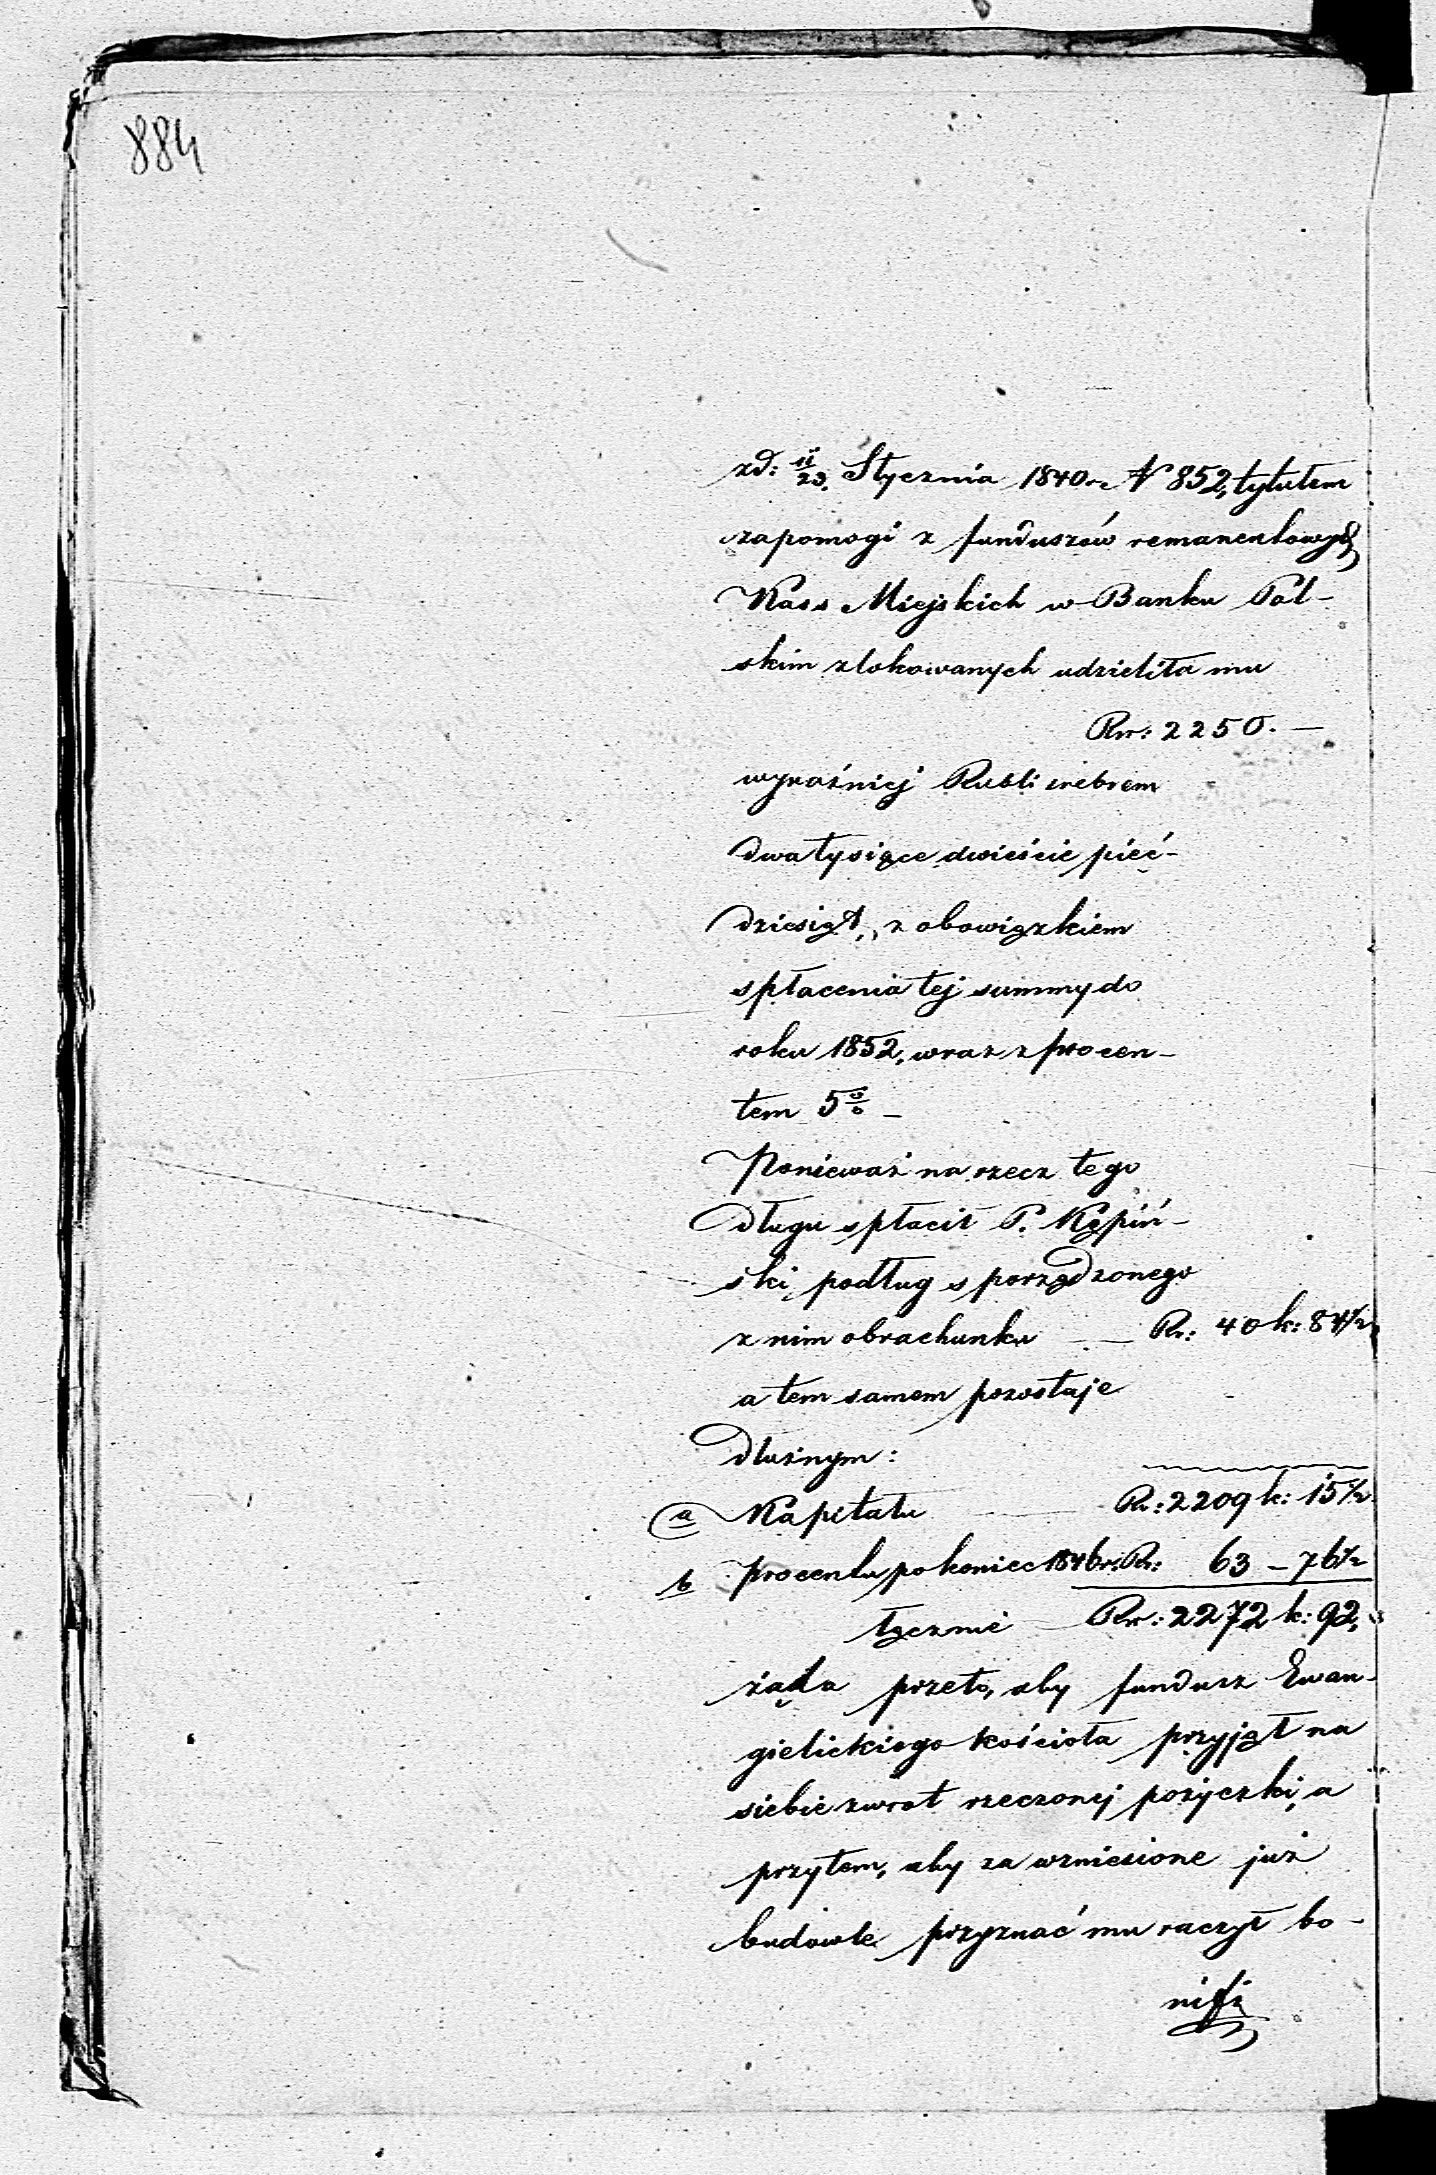 884
zd: 11/23. Stycznia 1840 r. N 852, tytułem
zapomogi z funduszów remanentowych
Kass Miejskich w Banku Pol-
skim zlokowanych udzieliła mu
Rsr: 2250. —
wyraźniej Rubli srebrem
dwa tysiące dwieście pięć-
dziesiąt, z obowiązkiem
spłacenia tej summy do
roku 1852, wraz z procen-
tem 5 % —
Ponieważ na rzecz tego
długu spłacił P. Kępiń-
ski, podług sporządzonego
z nim obrachunku — Rs: 40 k: 84 1/2
a tem samem pozostaje
dłużnym:
a Kapitału — Rs: 2209 k: 15 1/2
b procentu po koniec 1846 r. Rs: 63 – 76 1/2
łącznie — Rsr: 2272 k: 92,
żąda przeto, aby fundusz Ewan-
gielickiego kościoła przyjął na
siebie zwrot rzeczonej pożyczki, a
przytem, aby za wzniesione już
budowle przyznać mu raczył bo-
nifi